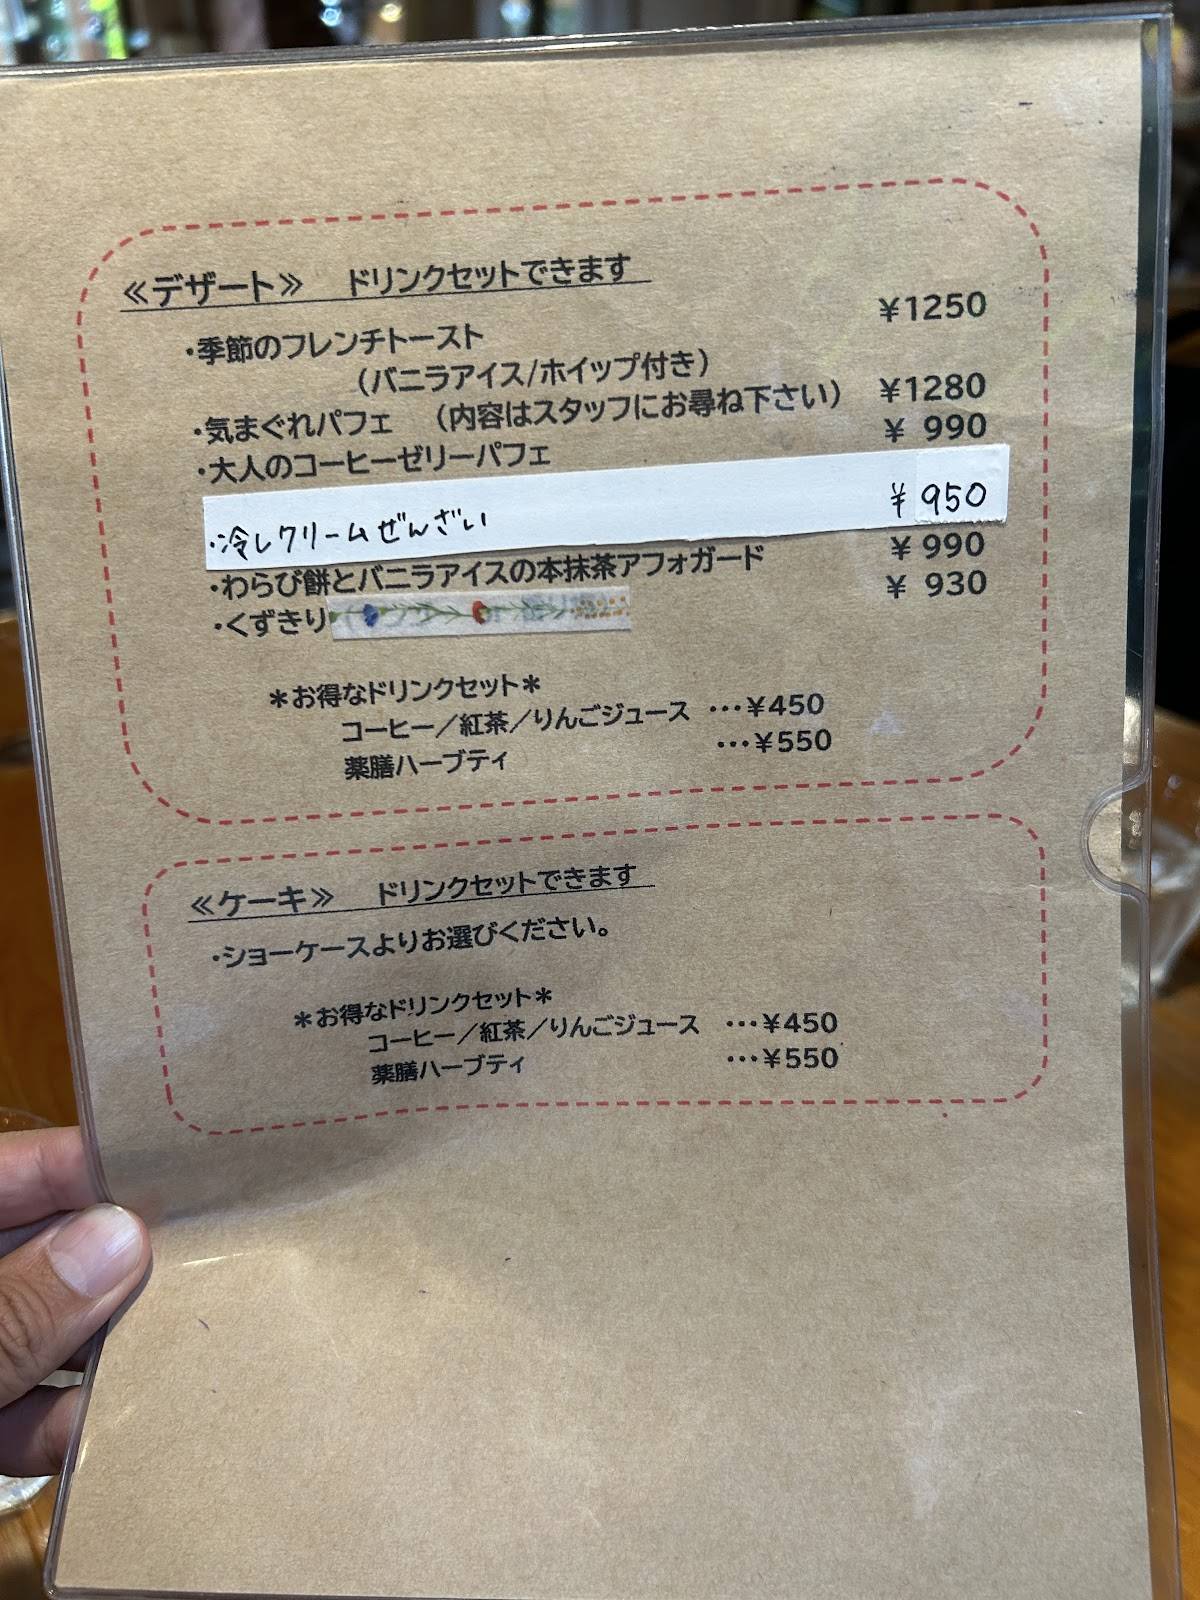 ≪デザート≫　ドリンクセットできます
・季節のフレンチトースト ¥1250
（バニラアイス/ホイップ付き）
・気まぐれパフェ　（内容はスタッフにお尋ね下さい） ¥1280
・大人のコーヒーゼリーパフェ ¥ 990
・冷しクリームぜんざい ¥950
・わらび餅とバニラアイスの本抹茶アフォガード ¥990
・くずきり ¥ 930
＊お得なドリンクセット＊
コーヒー／紅茶／りんごジュース …¥450
薬膳ハーブティ …¥550
≪ケーキ≫　ドリンクセットできます
・ショーケースよりお選びください。
＊お得なドリンクセット＊
コーヒー／紅茶／りんごジュース …¥450
薬膳ハーブティ …¥550